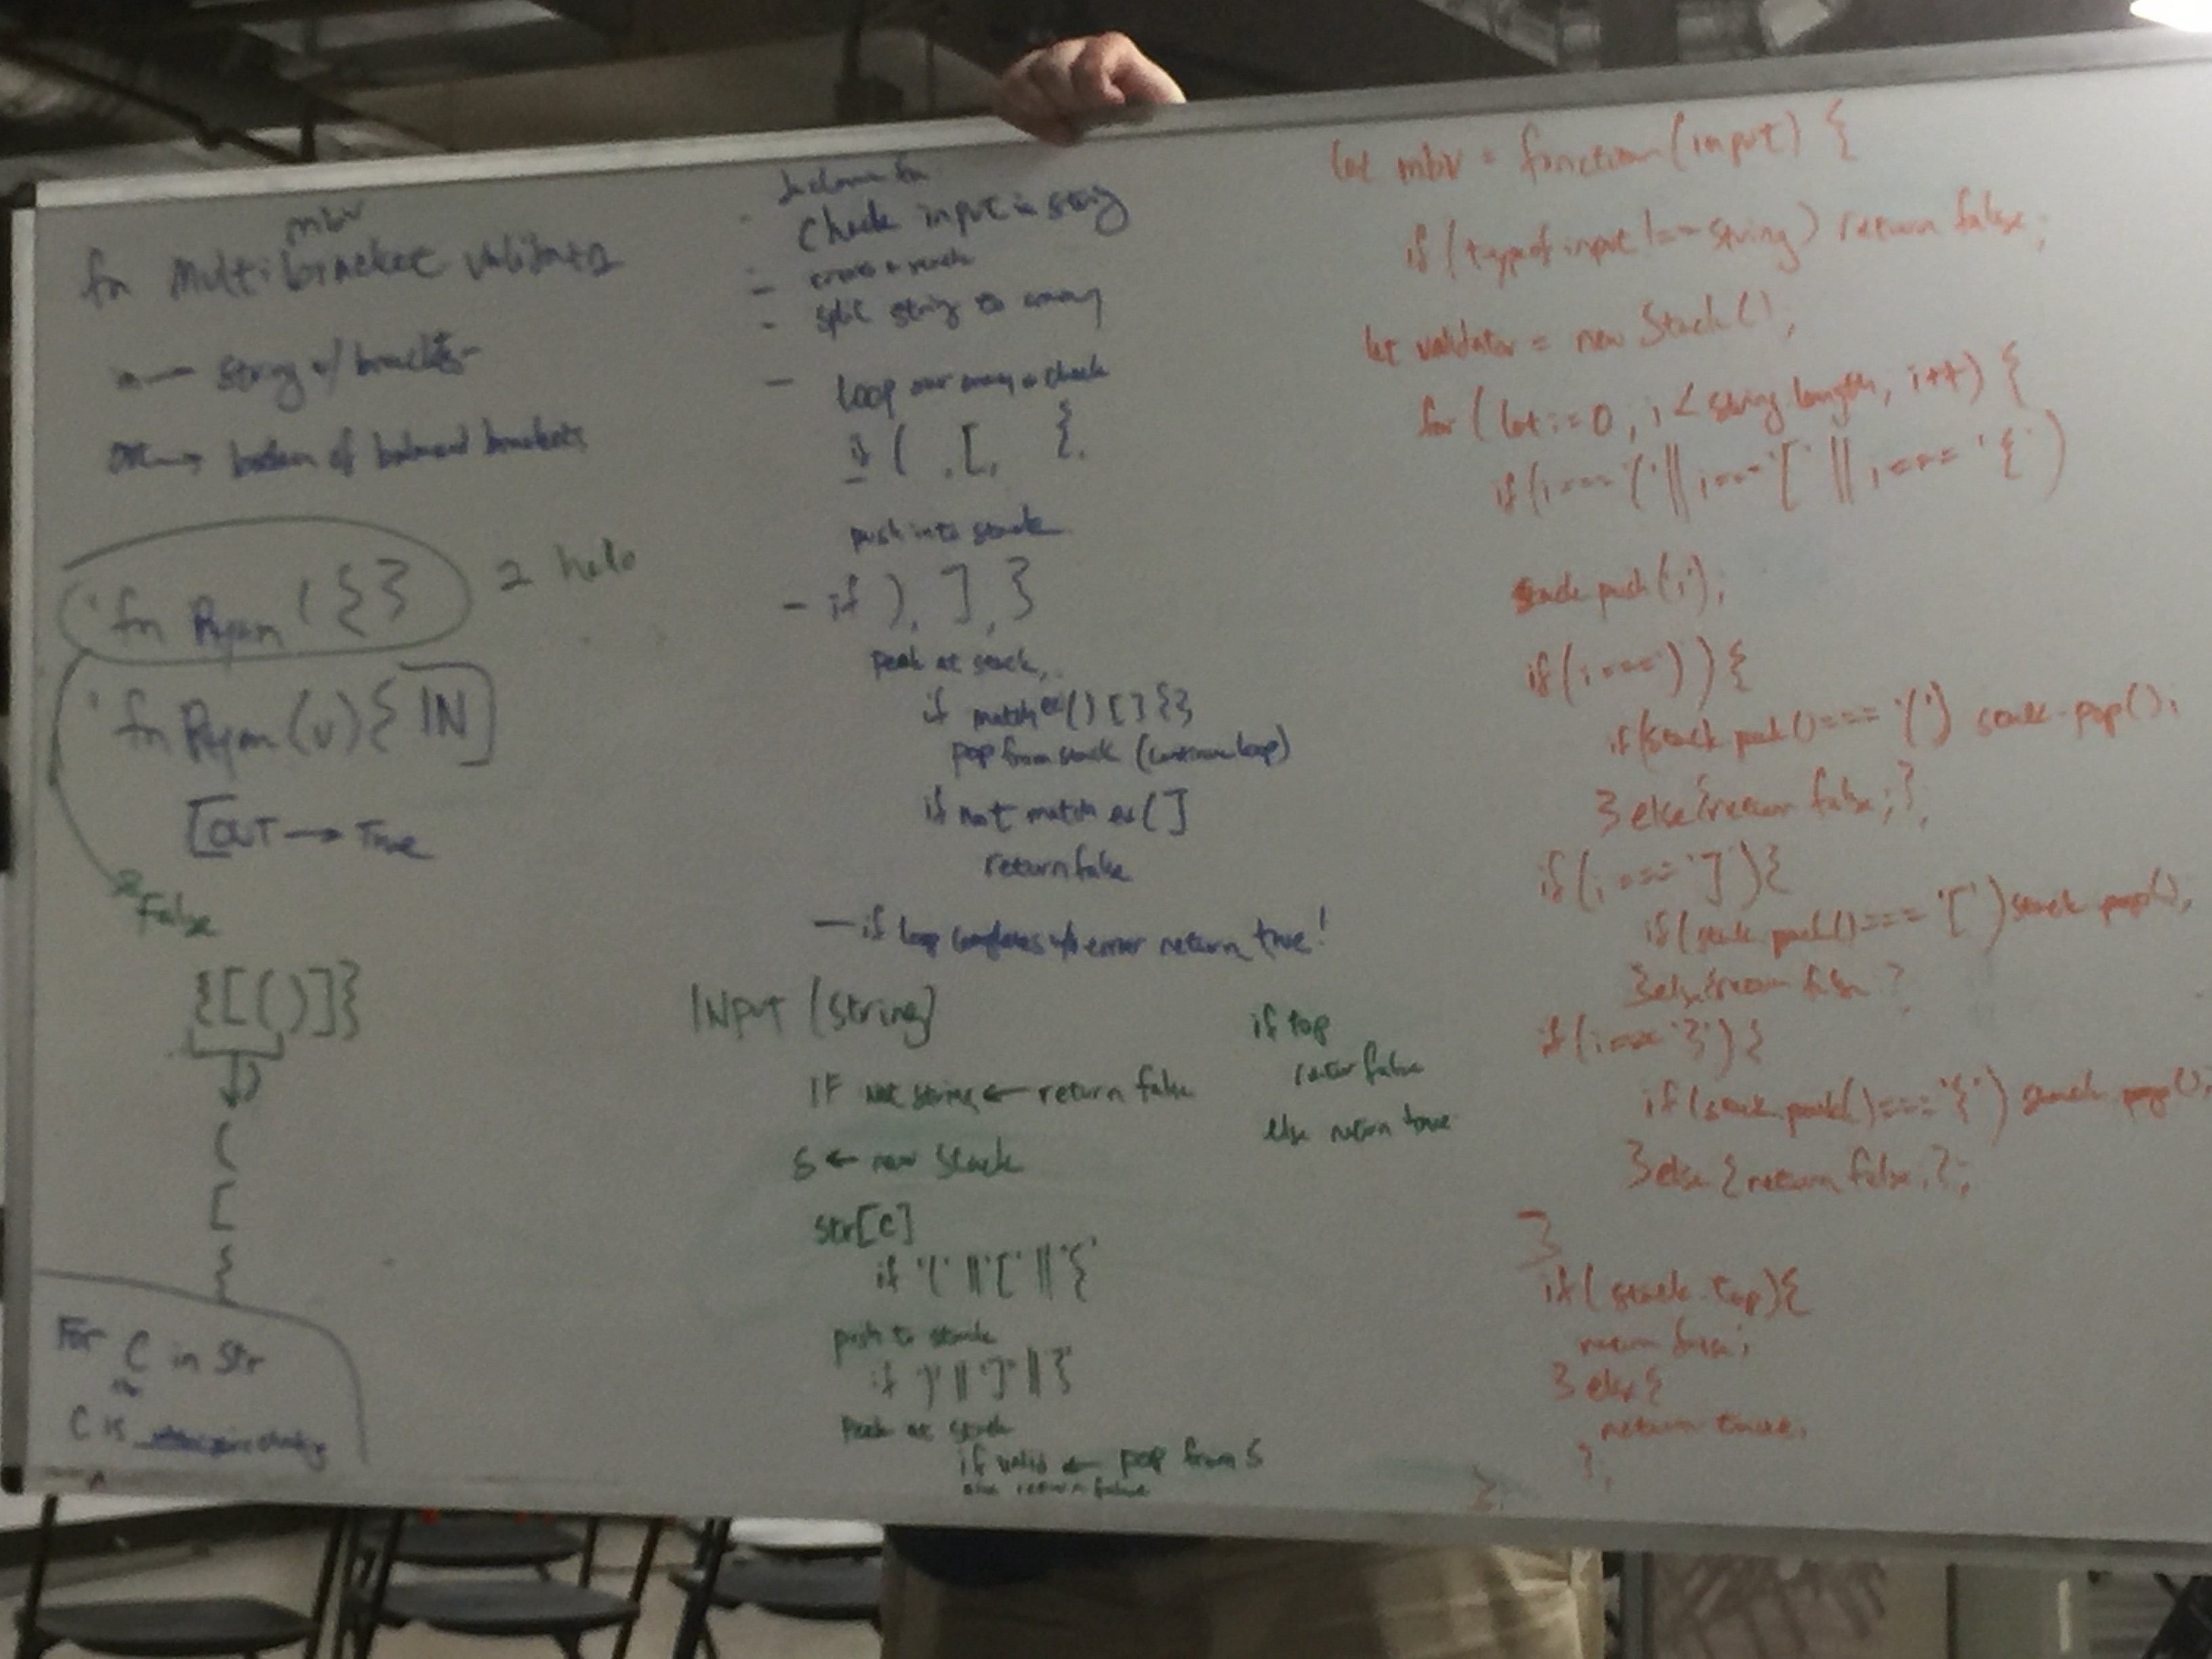 mbv
fn Multibracket validator
in — string w/ brackets
out → boolean of balanced brackets
'fn Ryan ( { }
2 helo
'fn Ryan (v) { IN ]
[OUT → True
False
{[()]}
(
[
{
For C in Str
C is
check input is string
split string to array
- loop over array & check
if ( , [, {.
push into stack
- if ), ], }
peak at stack,
if match ex () [ ] { }
pop from stack (continue loop)
if not match ex ( ]
return false
- if loop completes w/o error return true!
INPUT (string)
IF not string ← return false
S ← new Stack
str[c]
if '(' || '[' || '{'
push to stack
if ')' || ']' || }
Peak at stack
if valid ← pop from S
else return false
if top
return false
else return true
let mbv = function(input) {
if (typeof input !== string) return false;
let validator = new Stack();
for (let i = 0, i < string.length, i++) {
if (i === '(' || i === '[' || i === '{')
stack.push(i);
if (i === ')') {
if (stack.peak() === '(') stack.pop();
} else {return false;},
if (i === ']') {
if (stack.peak() === '[') stack.pop(),
} else {return false }
if (i === '}') {
if (stack.peak() === '{') stack.pop();
} else { return false; };
}
if (stack.top) {
return false;
} else {
return true;
};
};